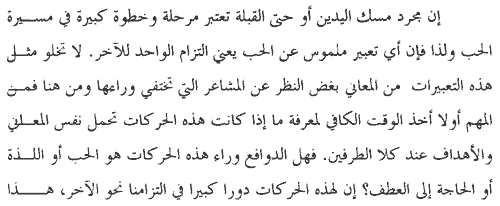 إن مجرد مسك اليدين أو حتى القبلة تعتبر مرحلة وخطوة كبيرة في مسيرة
الحب ولذا فإن أي تعبير ملموس عن الحب يعني التزام الواحد للآخر. لا تخلو مثل
هذه التعبيرات من المعاني بغض النظر عن المشاعر التي تختفي وراءها ومن هنا فمن
المهم أولا أخذ الوقت الكافي لمعرفة ما إذا كانت هذه الحركات تحمل نفس المعاني
والأهداف عند كلا الطرفين. فهل الدوافع وراء هذه الحركات هو الحب أو اللذة
أو الحاجة إلى العطف؟ إن لهذه الحركات دورا كبيرا في التزامنا نحو الآخر، هذا